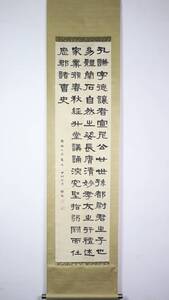 孔謙字德讓者宣尼公廿世孫都尉君之子也
幼體蘭石自然之姿長膺清妙孝友之行禘述
家業脩春秋經升堂講誦深究聖指弱冠而仕
歷郡諸曹史